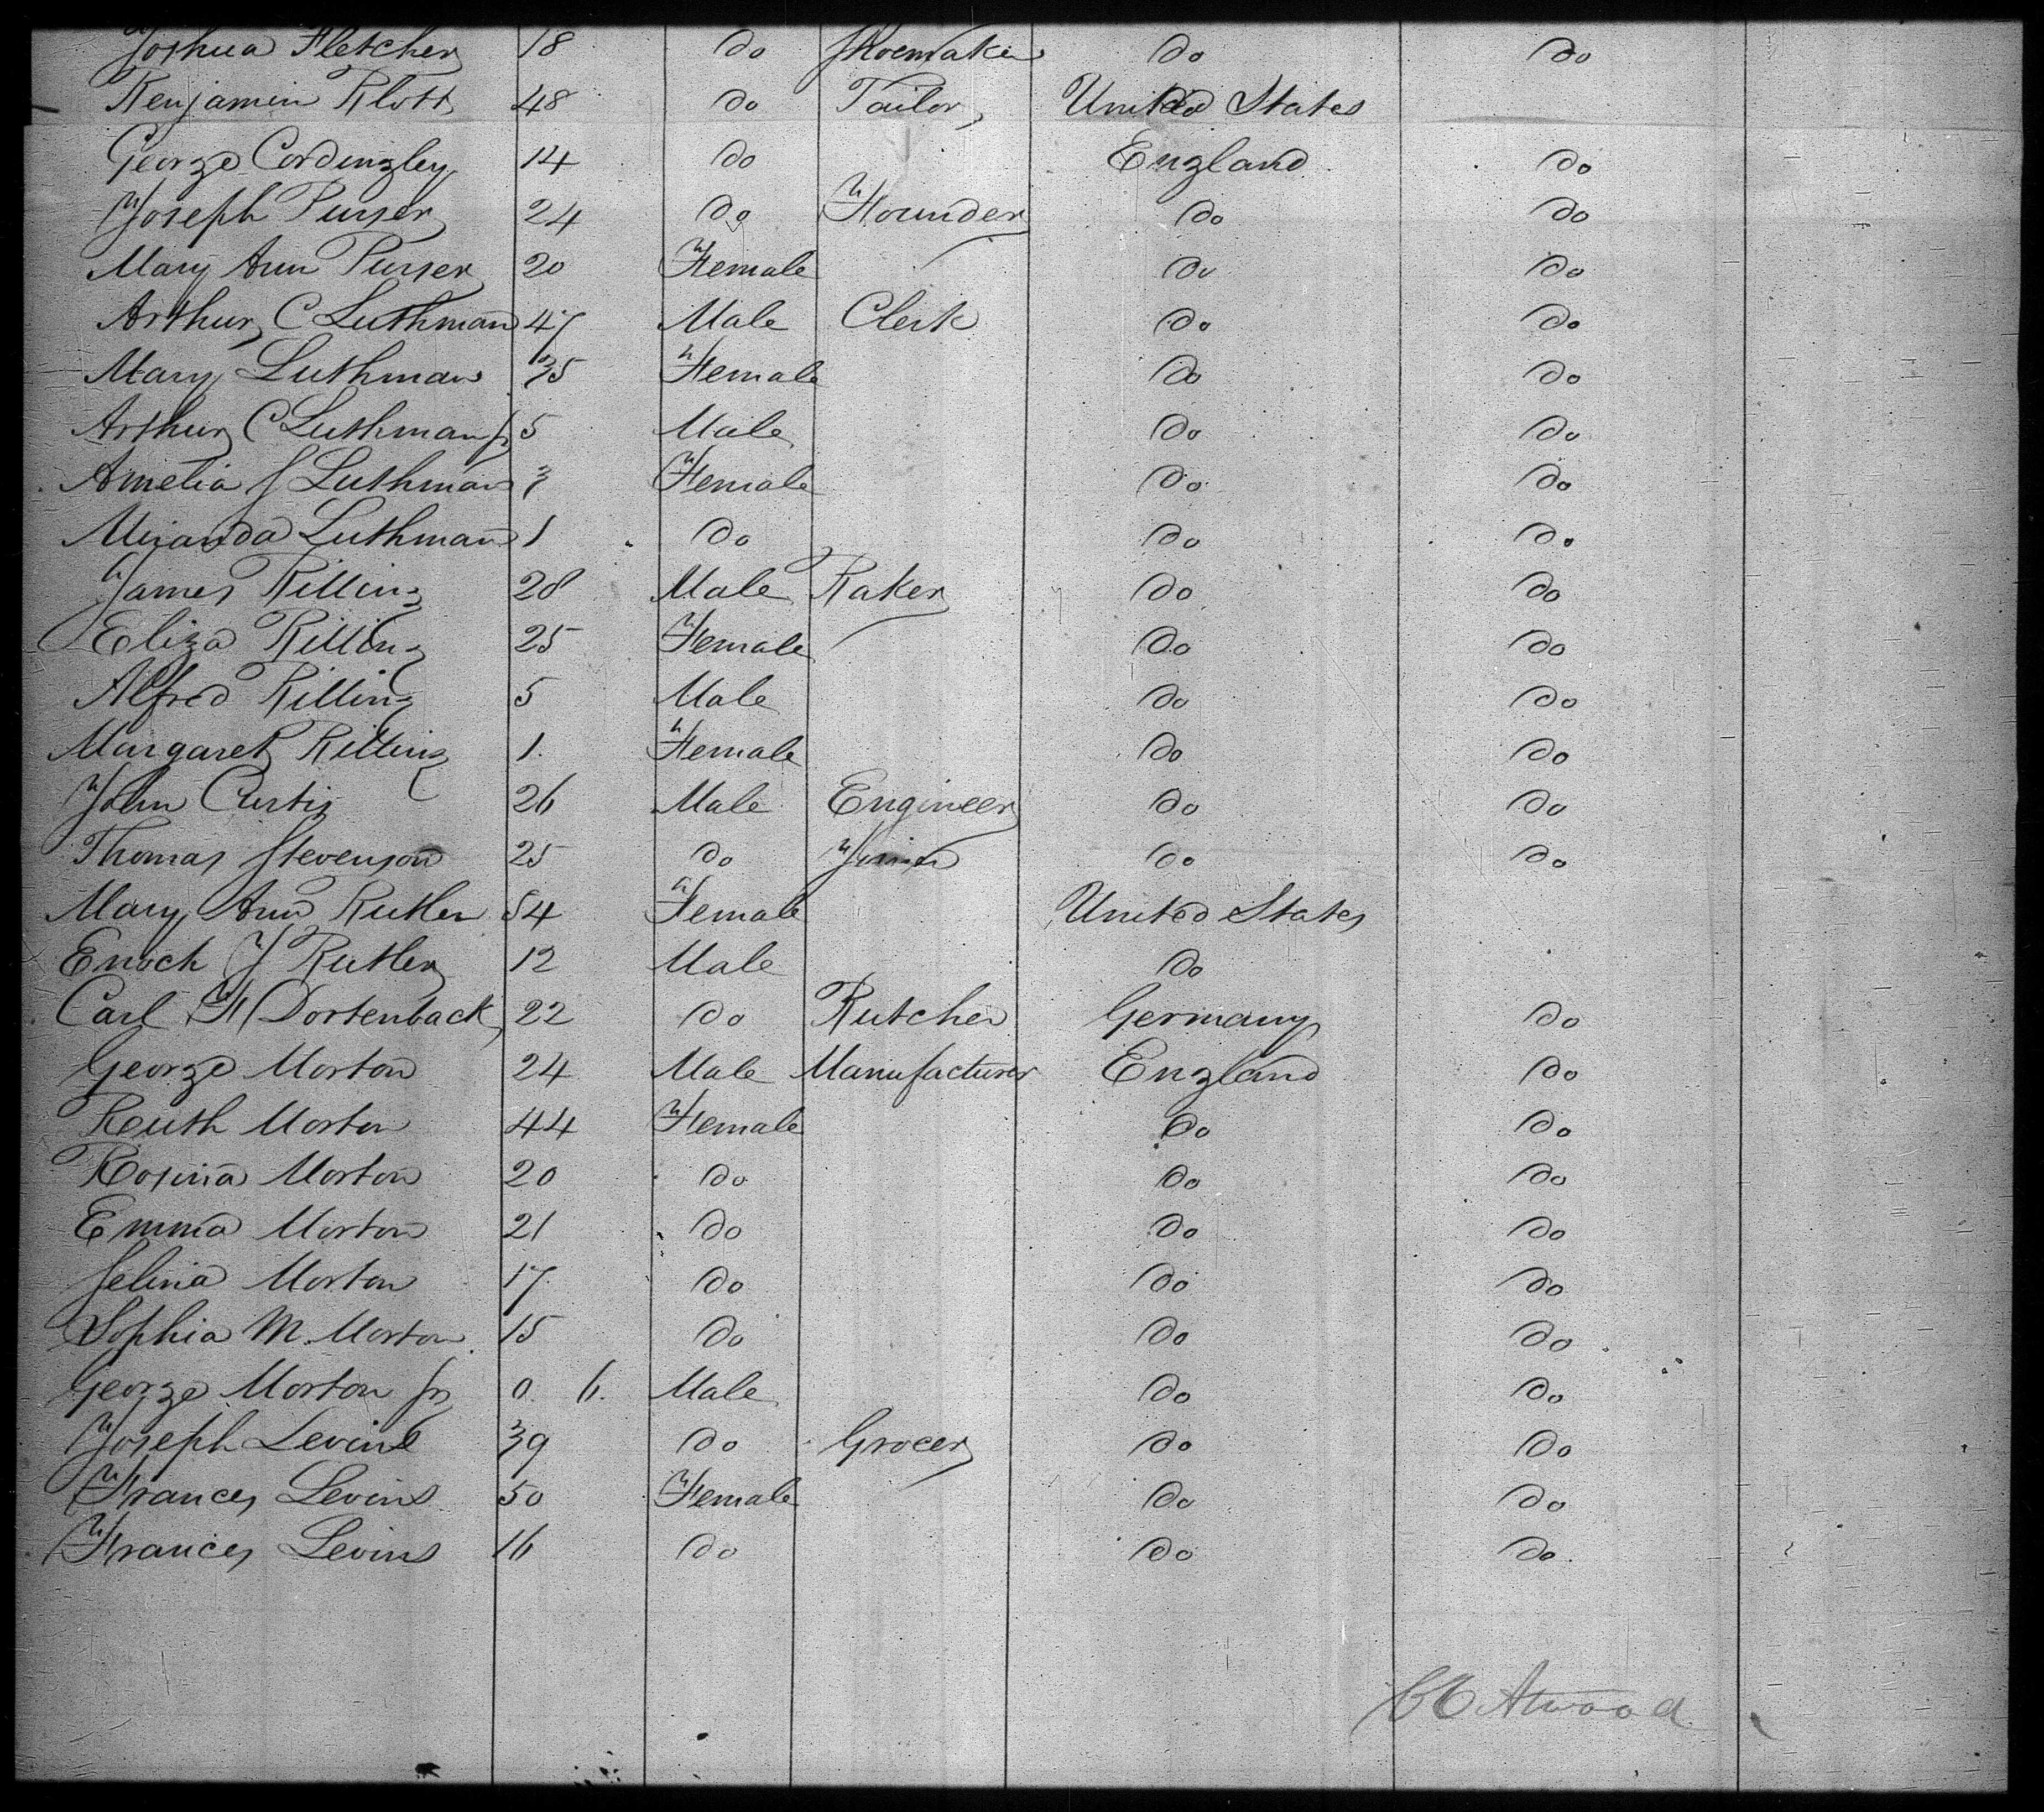 Joshua Fletcher 18 do Shoemaker do do
Benjamin Blott 48 do Tailor United States
George Cordingley 14 do England do
Joseph Purser 24 do Founder do do
Mary Ann Purser 20 Female do do
Arthur C Luthman 47 Male Clerk do do
Mary Luthman 35 Female do do
Arthur C Luthman Jr 5 Male do do
Amelia S Luthman 3 Female do do
Miranda Luthman 1 do do do
James Billing 28 Male Baker do do
Eliza Billing 25 Female do do
Alfred Billing 5 Male do do
Margaret Billing 1 Female do do
John Curtis 26 Male Engineer do do
Thomas Stevenson 25 do Joiner do do
Mary Ann Butler 54 Female United States
Enoch J Butler 12 Male do
Carl F Dortenback 22 do Butcher Germany do
George Morton 24 Male Manufacturer England do
Ruth Morton 44 Female do do
Rosina Morton 20 do do do
Emma Morton 21 do do do
Selina Morton 17 do do do
Sophia M. Morton 15 do do do
George Morton Jr 0 6. Male do do
Joseph Levins 39 do Grocer do do
Frances Levins 50 Female do do
Frances Levins 16 do do do
Atwood